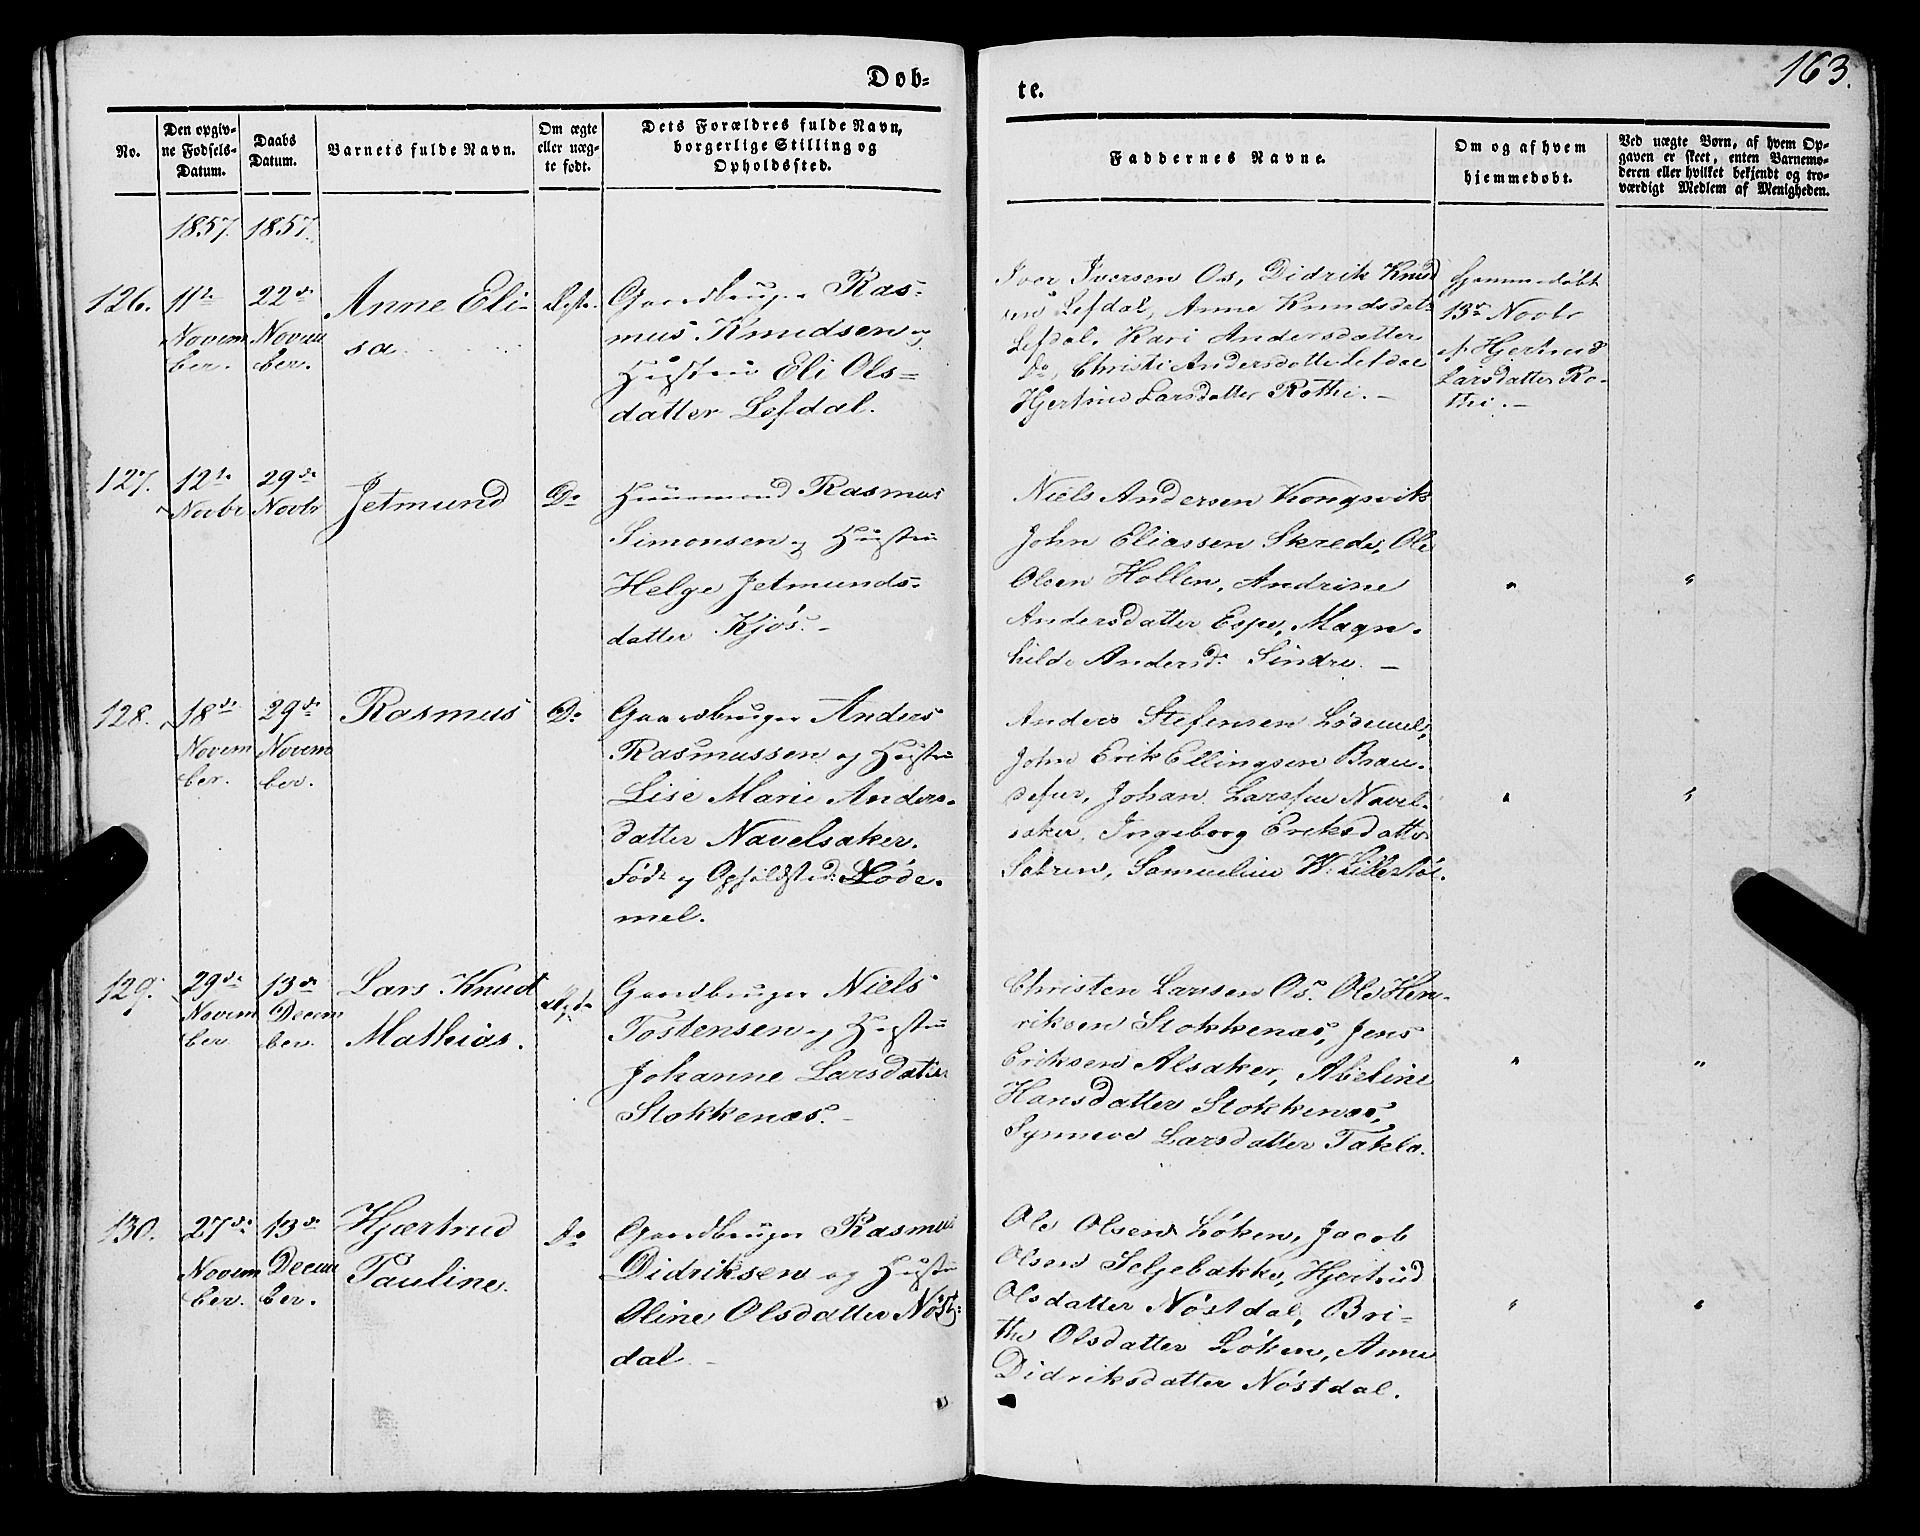 163.
Døb=
te.
No.
Den opgiv-
ne Fødsels-
Datum.
Daabs
Datum.
Barnets fulde Navn.
Om ægte
eller uæg-
te født.
Dets Forældres fulde Navn,
borgerlige Stilling og
Opholdssted.
Faddernes Navne.
Om og af hvem
hjemmedøbt.
Ved uægte Børn, af hvem Op-
gaven er skeet, enten Barnemo-
deren eller hvilket bekjendt og tro-
værdigt Medlem af Menigheden.
1857.
1857.
126.
11te
Novem
ber.
22de
Novem
ber.
Anne Eli-
sa
Ægte
Gaardbruger Ras-
mus Knudsen og
Hustru Eli Ols=
datter Lefdal.
Iver Iversen Os, Didrik Knud
sen Lefdal, Anne Knudsdat:
Lefdal, Kari Andersdatter
Do, Christi Andersdatter Lefdal
Hjertrud Larsdatter Rothi. -
Hjemmedøbt
13de Novbr
af Hjertrud
Larsdatter Ro-
thi. -
127.
12te
Novbr
29de
Novbr
Jetmund
Do
Huusmand Rasmus
Simonsen og Hustru
Helge Jetmunds-
datter Kjös. -
Niels Andersen Kongsvik
John Eliassen Skrede, Ole
Olsen Hollen, Andrine
Andersdatter Espe, Magn-
hilde Andersd: Sindre. -
"
"
128.
18de
Novem
ber.
29de
Novem
ber.
Rasmus
Do
Gaardbruger Anders
Rasmussen og Hustru
Lise Marie Anders-
datter Navelsaker.
Føde og Opholdsted: Löde-
mel.
Anders Stefensen Lödemel,
John Erik Ellingsen
Johan Larsen Navel-
saker, Ingeborg Eriksdatter
Sætren, Samueline W.
"
"
129.
29de
Novem
ber
13de
Decem
ber.
Lars Knud
Mathias.
Ægte
Gaardbruger Niels
Tostensen og Hustru
Johanne Larsdatter
Stokkenæs. -
Christen Larsen Os. Ole Hen-
riksen Stokkenæs, Jens
Eriksen Alsaker, Abeline
Hansdatter Stokkenæs,
Synneve Larsdatter Taklo.
"
"
130.
27de
Novem
ber.
13de
Decem
ber.
Hjærtrud
Pauline.
Do
Gaardbruger Rasmus
Didriksen og Hustru
Oline Olsdatter Nöst-
dal. -
Ole Olsen Löken, Jacob
Olsen Seljebakke, Hjertrud
Olsdatter Nöstdal, Bri-
the Olsdatter Löken, Anne
Didriksdatter Nöstdal.
"
"